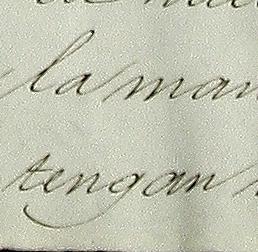 la man
tengan